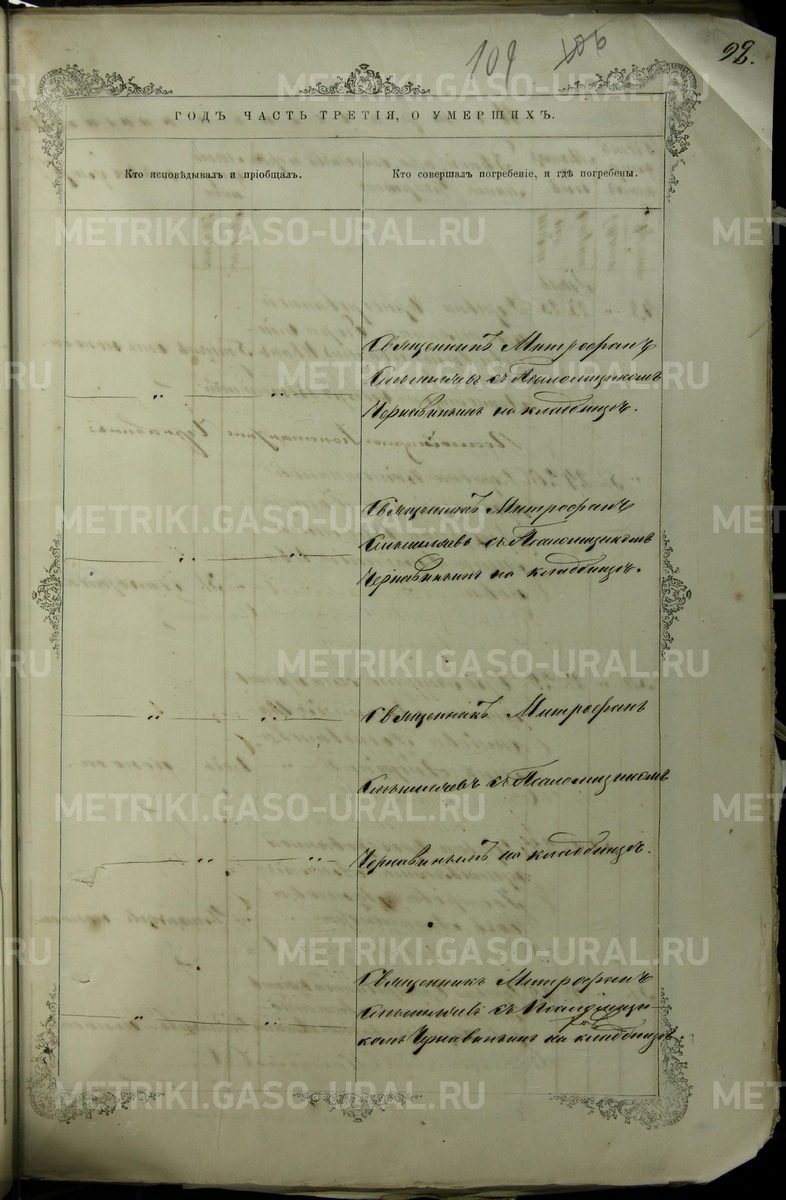 109 106
92.
ГОДЪ ЧАСТЬ ТРЕТІЯ, О УМЕРШИХЪ.
Кто исповѣдывалъ и пріобщалъ.
Кто совершалъ погребеніе, и гдѣ погребены.
Священникъ Митрофанъ
съ Псаломщикомъ
Чернавинымъ на кладбищѣ.
Священникъ Митрофанъ
съ Псаломщикомъ
Чернавинымъ на кладбищѣ.
Священникъ Митрофанъ
съ Псаломщикомъ
Чернавинымъ на кладбищѣ.
Священникъ Митрофанъ
съ Псаломщи-
комъ Чернавинымъ на кладбищѣ
METRIKI.GASO-URAL.RU